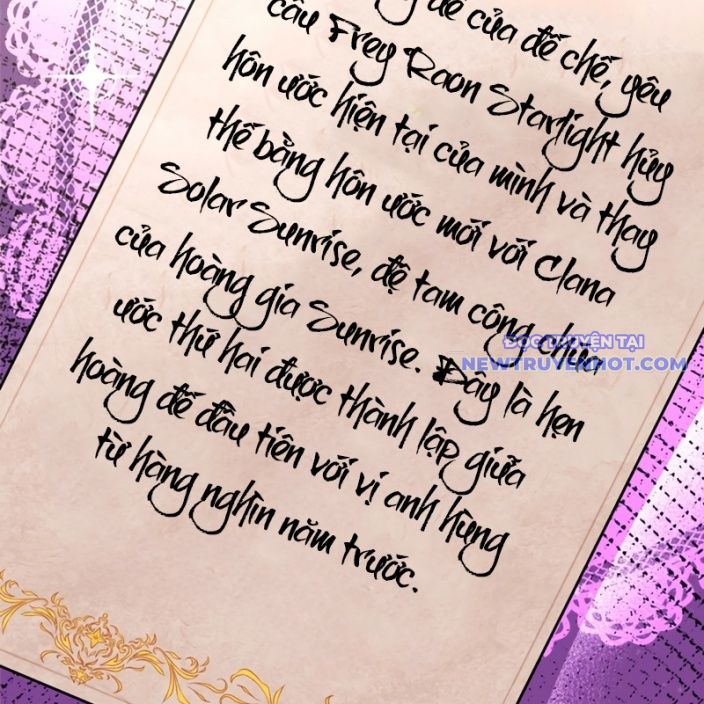 đế của đế chế, yêu
cầu Frey Raon Starlight hủy
hôn ước hiện tại của mình và thay
thế bằng hôn ước mới với Clana
Solar Sunrise, đệ tam công chúa
của hoàng gia Sunrise. Đây là hẹn
ước thứ hai được thành lập giữa
hoàng đế đầu tiên với vị anh hùng
từ hàng nghìn năm trước.
ĐỌC TRUYỆN TẠI
NEWTRUYENHOT.COM